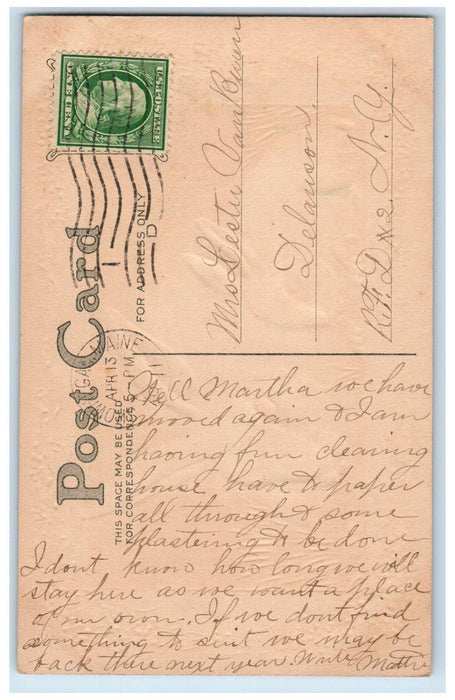 Post Card
THIS SPACE MAY BE USED
FOR CORRESPONDENCE
FOR ADDRESS ONLY
APR 13
5 PM
11
Mrs Lester Van Buren
Delanson.
R.F.D × 2. N.Y.
Well Martha we have
moved again & I am
having fun cleaning
house have to paper
all through & some
plastering to be done
I dont know how long we will
stay here as we want a place
of our own. If we dont find
something to suit we may be
back there next year. Write Mattie